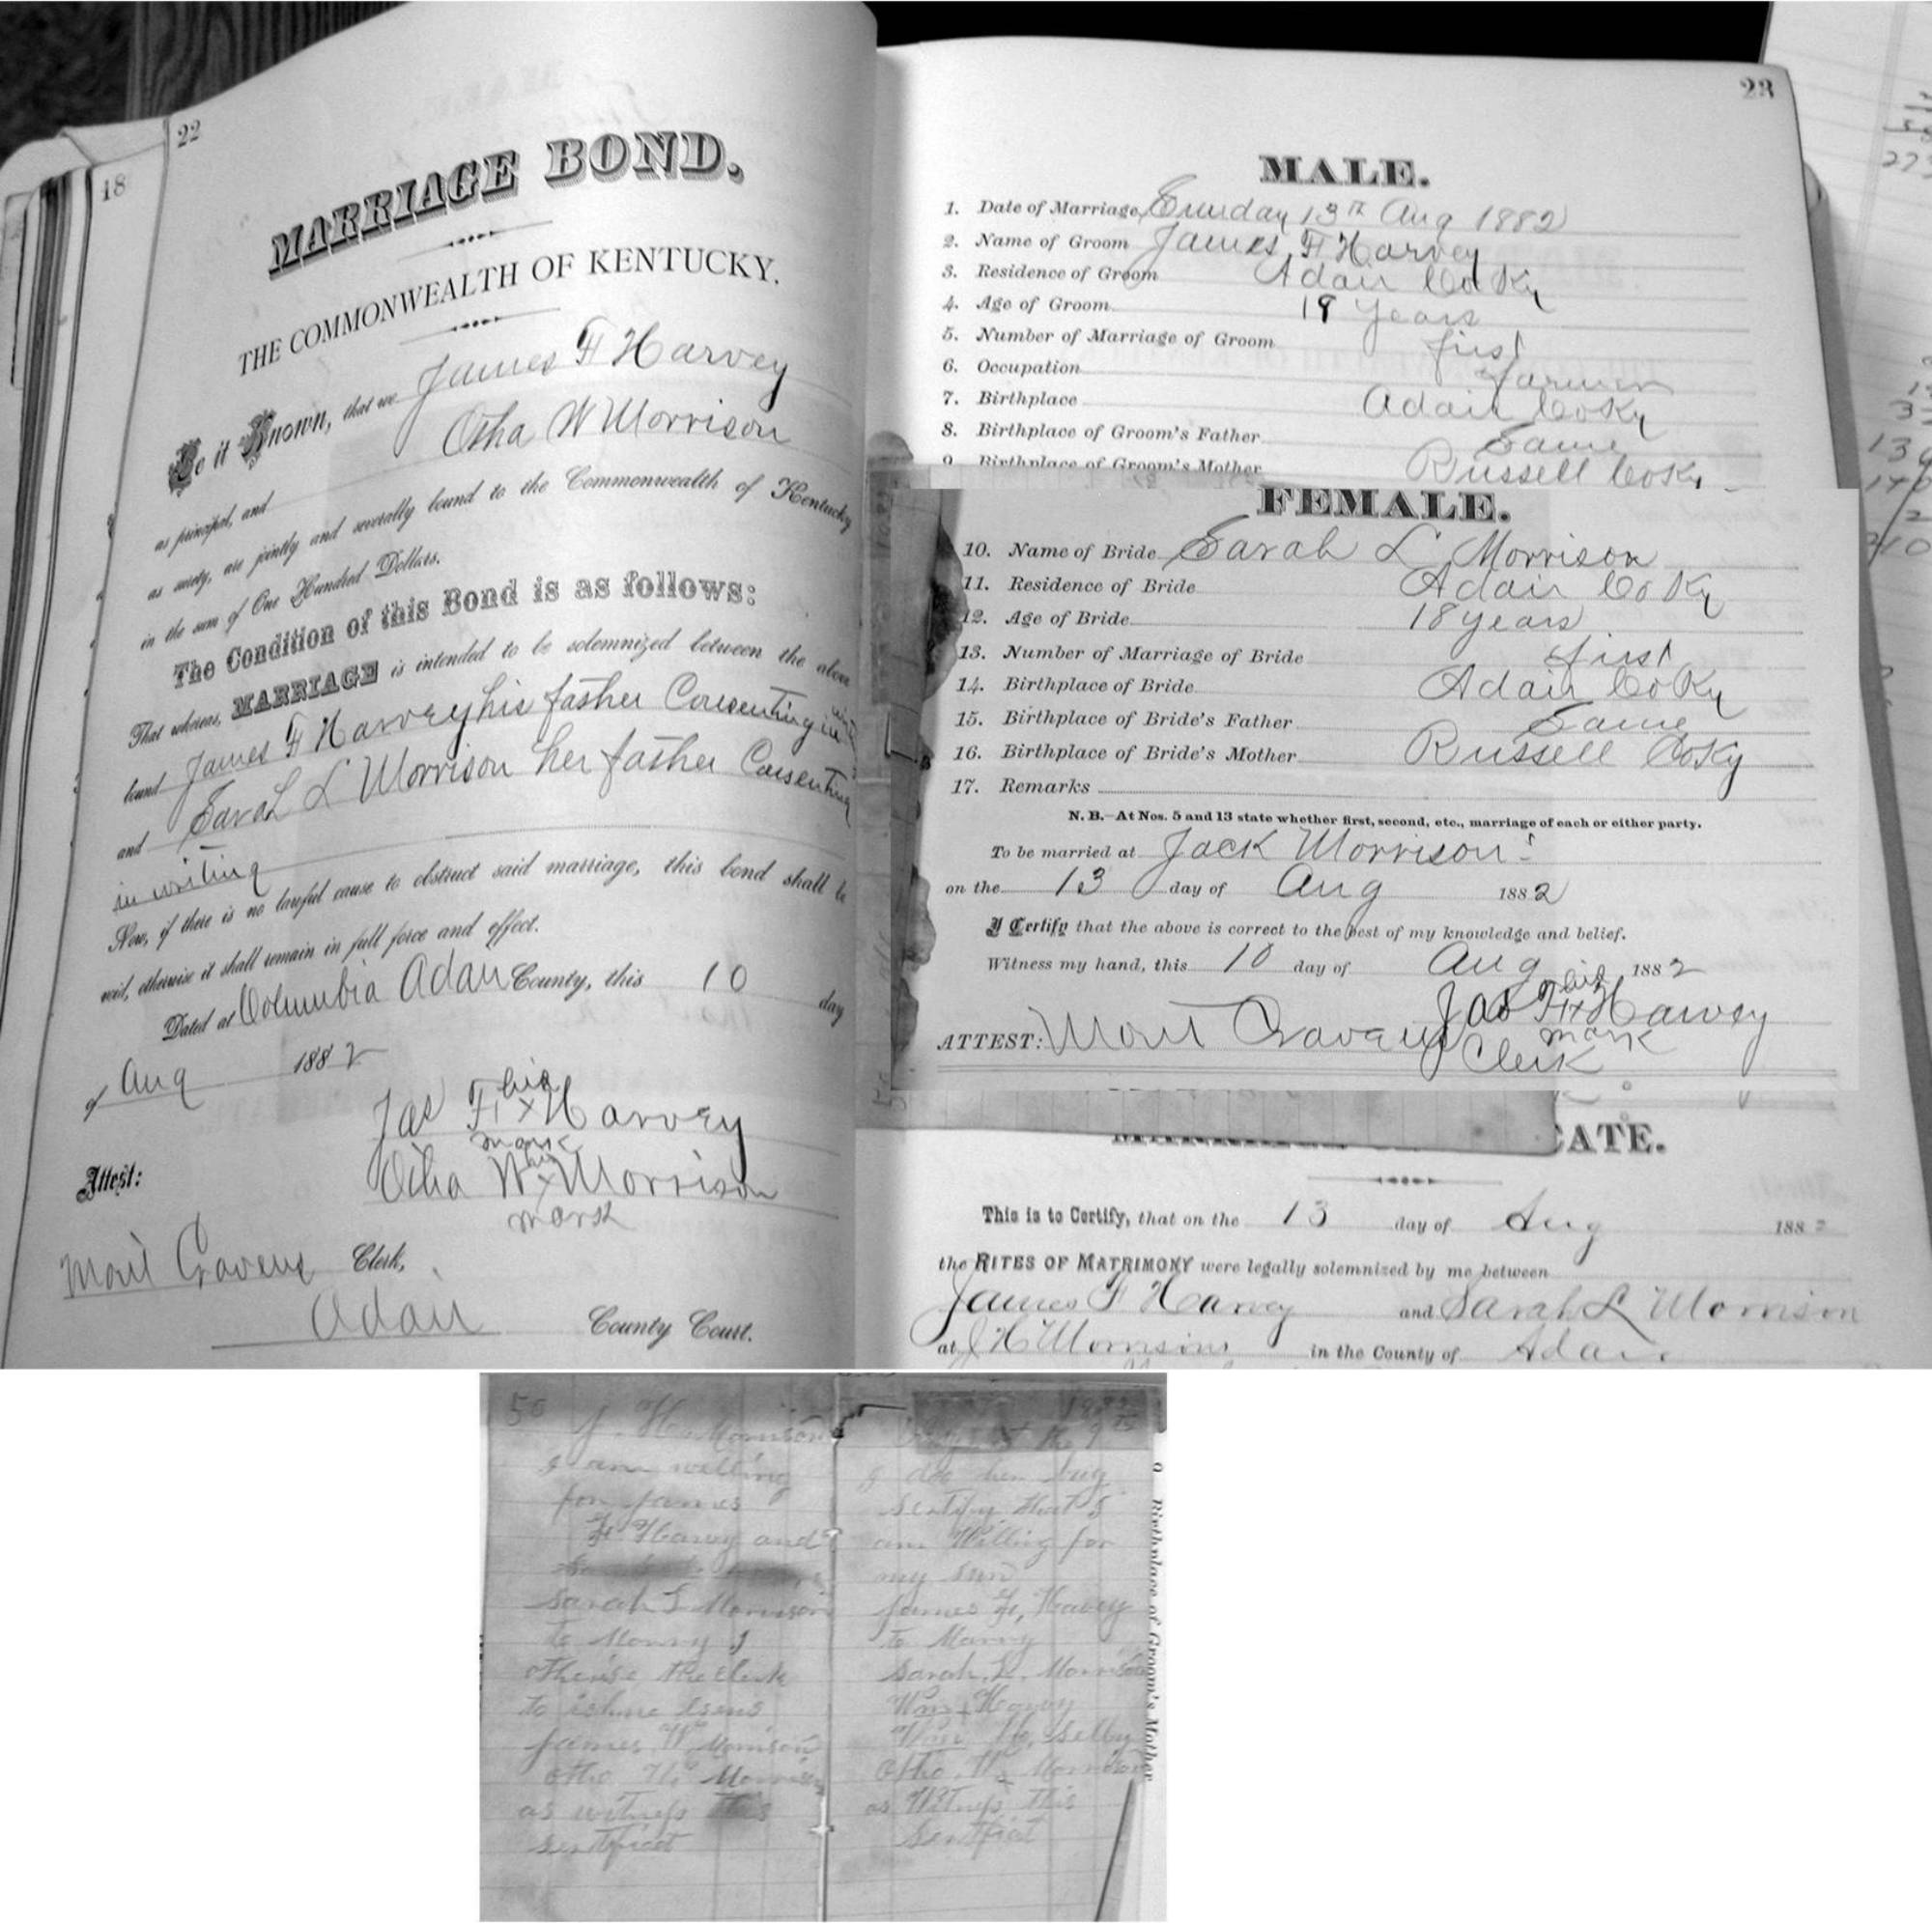 22
18
MARRIAGE BOND.
THE COMMONWEALTH OF KENTUCKY.
Be it Known, that we James F Harvey
as principal, and Otha W Morrison
as surety, are jointly and severally bound to the Commonwealth of Kentucky
in the sum of One Hundred Dollars.
The Condition of this Bond is as follows:
That whereas, MARRIAGE is intended to be solemnized between the above
bound James F Harvey his father Consenting in
and Sarah L Morrison her father Consenting
in writing
Now, if there is no lawful cause to obstruct said marriage, this bond shall be
void, otherwise it shall remain in full force and effect.
Dated at Columbia Adair County, this 10 day
of Aug 1882
Jas F his x Harvey
mark
Attest: Otha W his x Morrison
mark
Mont Cravens Clerk,
Adair County Court.
23
MALE.
1. Date of Marriage, Sunday 13th Aug 1882
2. Name of Groom James F Harvey
3. Residence of Groom Adair Co Ky
4. Age of Groom 19 Years
5. Number of Marriage of Groom first
6. Occupation Farmer
7. Birthplace Adair Co Ky
8. Birthplace of Groom's Father Same
9 Birthplace of Groom's Mother Russell Co Ky
FEMALE.
10. Name of Bride Sarah L Morrison
11. Residence of Bride Adair Co Ky
12. Age of Bride 18 years
13. Number of Marriage of Bride first
14. Birthplace of Bride Adair Co Ky
15. Birthplace of Bride's Father Same
16. Birthplace of Bride's Mother Russell Co Ky
17. Remarks
N. B.—At Nos. 5 and 13 state whether first, second, etc., marriage of each or either party.
To be married at Jack Morrison's
on the 13 day of Aug 1882
I Certify that the above is correct to the best of my knowledge and belief.
Witness my hand, this 10 day of Aug 1882
Jas F his x Harvey
mark
ATTEST: Mont Cravens Clerk
CATE.
This is to Certify, that on the 13 day of Aug 1882
the RITES OF MATRIMONY were legally solemnized by me between
James F Harvey and Sarah L Morrison
at J H Morrisons in the County of Adair
50
J. H. Morrison
I am willing
for James
F Harvy and
Sarah L Morrison
to Marry I
otherise the Clerk
to ishue
James W Morrison
Otho W Morrison
as witness this
sentficat
1882
I doo
sertify that I
am Willing for
my sun
James F, Havey
to Marry
Sarah. L. Morrison
Wm Havey
Selby
Otho. W. Morrison
as Witness this
Sentficat
Birthplace of Groom's Mother